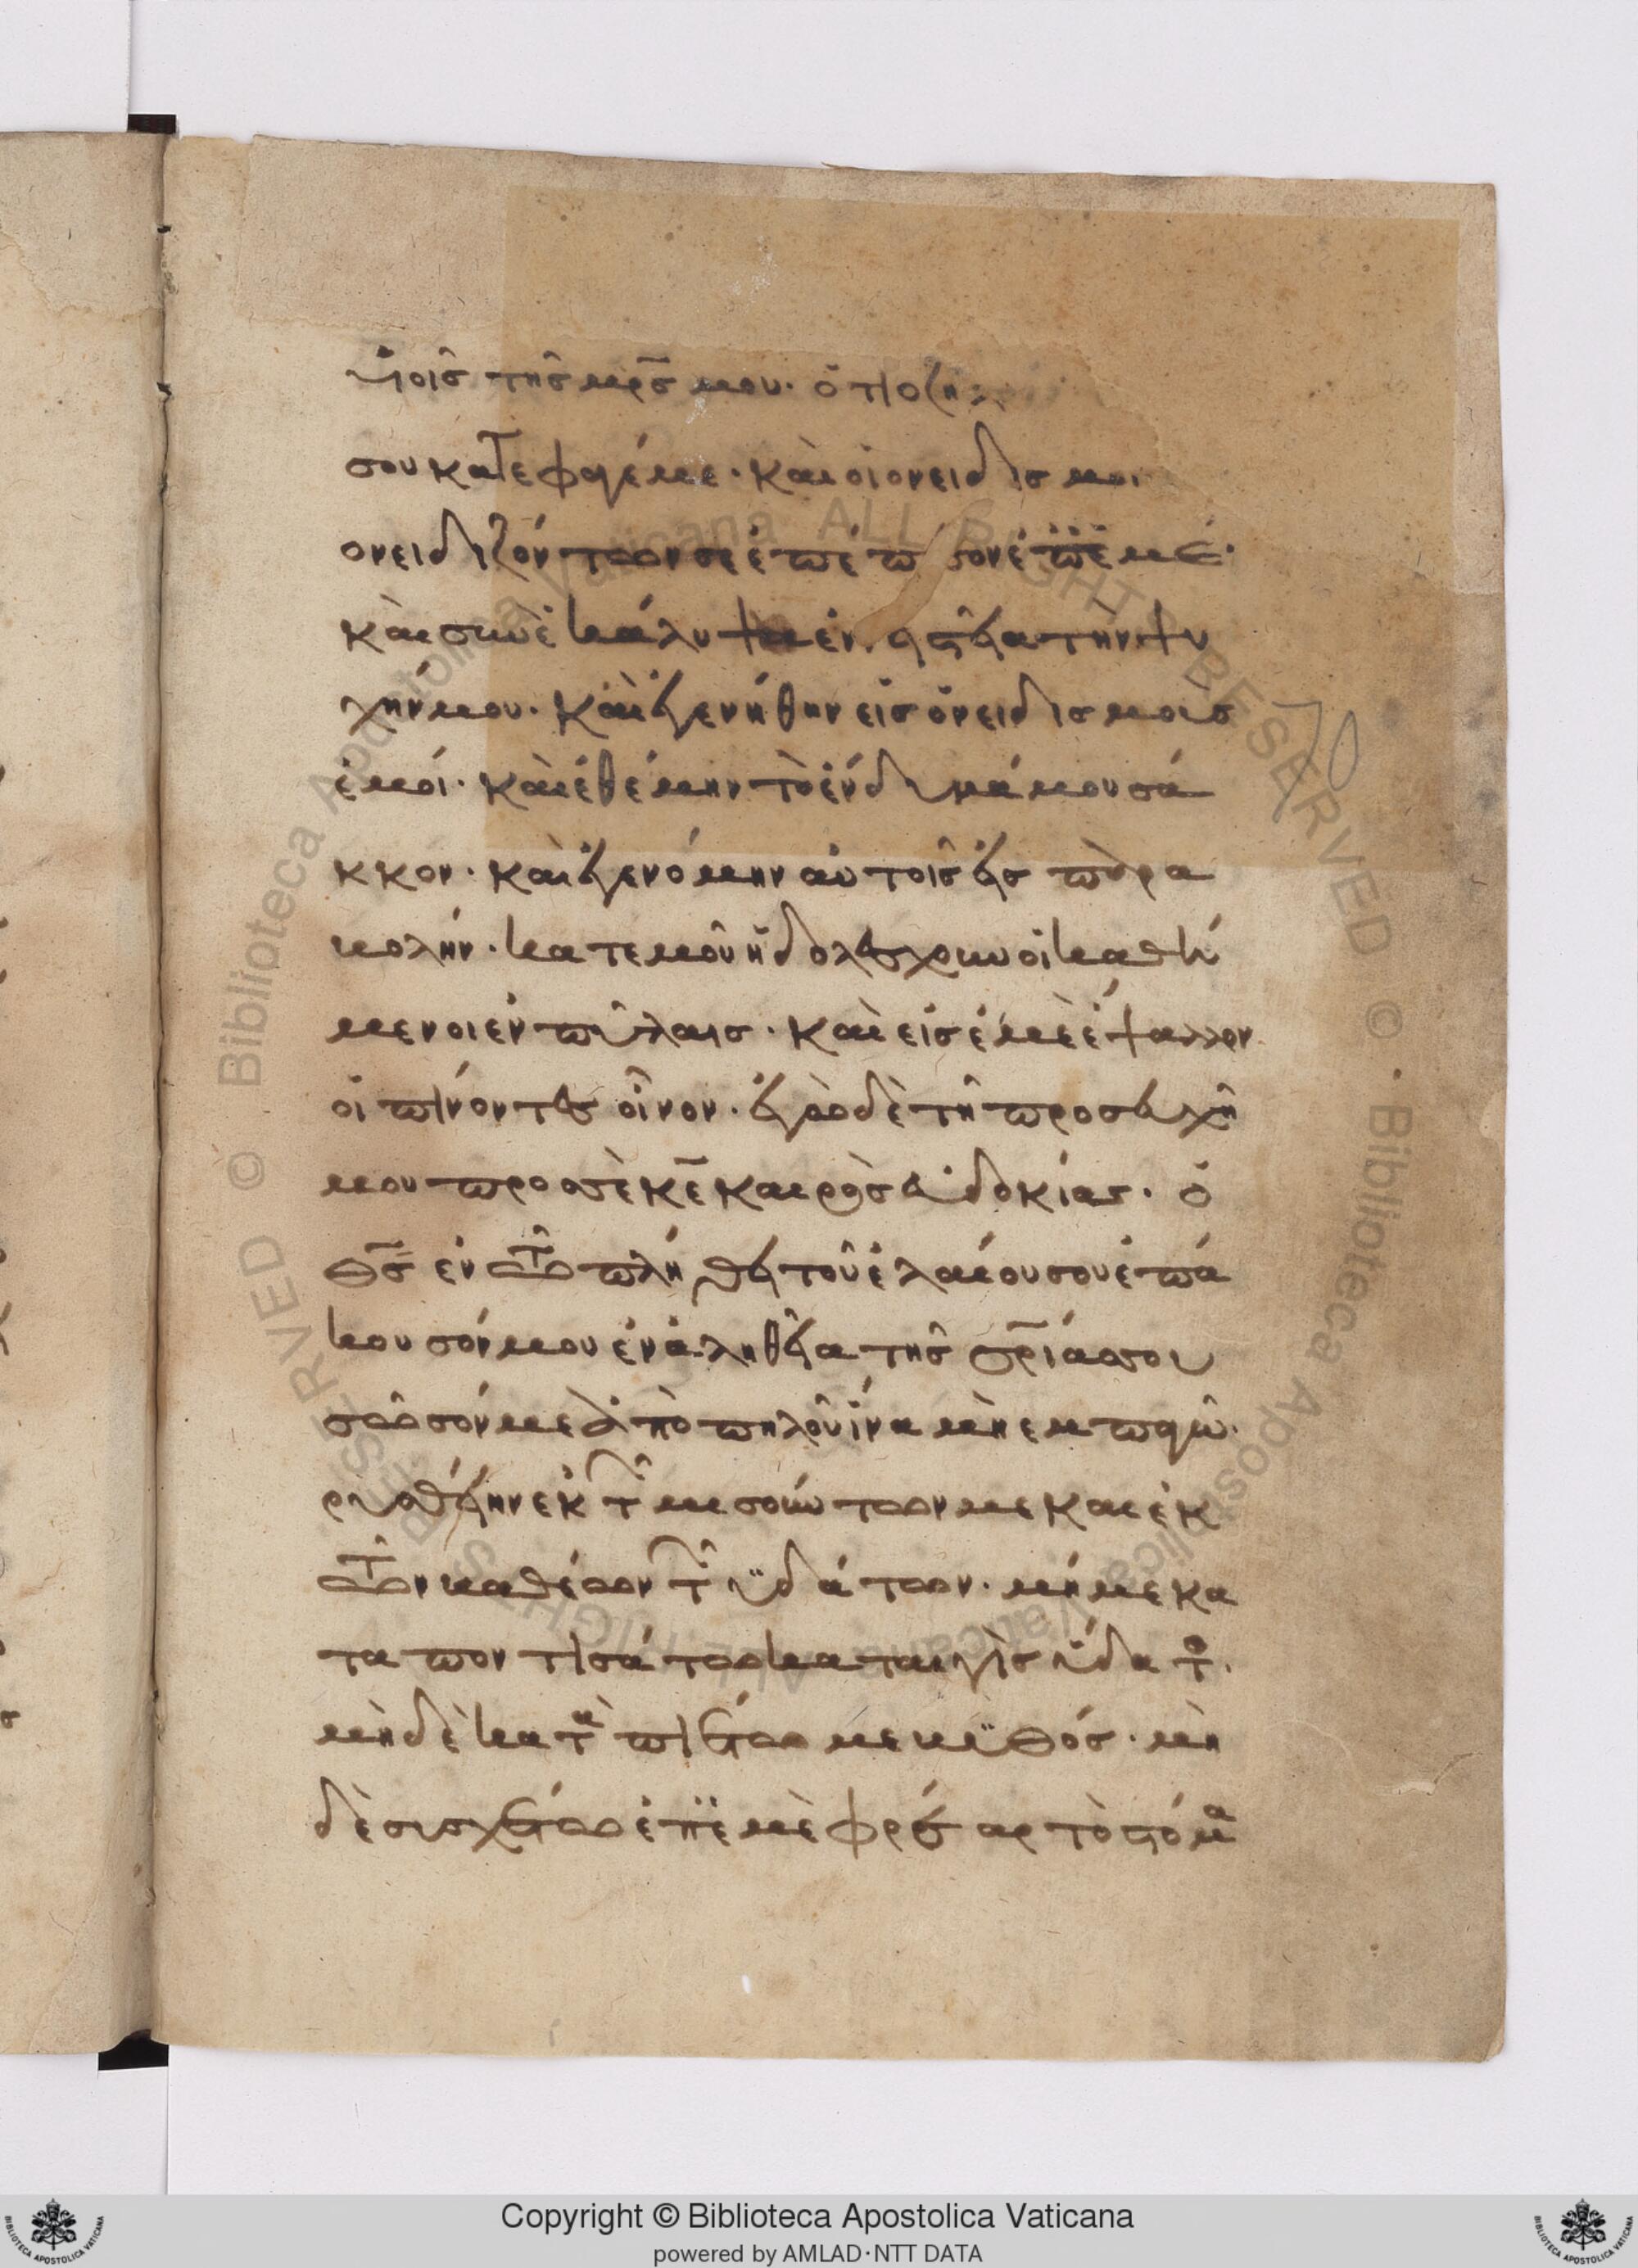 υἱοῖς τῆς μρ̅ς μου· ὅτι ὁ ζῆλ
σου κατέφαγέ με· καὶ οἱ ονειδισμοι
ονειδιζόντων σε ἐπέπεσον ἐπ' ἐμέ·
καὶ συνεκάλυψα ἐν νηστεία τὴν ψυ
χήν μου· καὶ ἐγενήθην εἰς ὀνειδισμοὺς
ἐμοί· καὶ ἐθέμην τὸ ἔνδυμά μου σά
κκον· καὶ ἐγενόμην αὐτοῖς εἰς παρα
βολήν· κατ εμοῦ ἠδολέσχουν οἱ καθή
μενοι ἐν πύλαις· καὶ εἰς ἐμὲ ἔψαλλον
οἱ πίνοντες οἶνον· ἐγὼ δὲ τῆ προσευχῆ
μου προς σὲ κε̅ καιρὸς εὐδοκίας· ὁ
θς̅ ἐν τῶ πλήθει τοῦ ἐλέους σου ἐπά
κουσόν μου ἐν ἀληθεία τῆς σρ̅ίας σου
σῶσόν με ἀπὸ πηλοῦ ἵνα μὴ εμπαγῶ·
ρυσθείην ἐκ τῶν μισούντων με καὶ ἐκ
τῶν βαθέων τῶν ὑδάτων· μή με κα
ταποντισάτω καταιγὶς ὕδατο·
μηδὲ καταπιέτω με βυθός· μη
δὲ συσχέτω ἐπ' ἐμὲ φρέαρ τὸ στόμα
70
Copyright © Biblioteca Apostolica Vaticana
powered by AMLAD·NTT DATA
© Biblioteca Apostolica Vaticana ALL RIGHTS RESERVED © · Biblioteca Apostolica Vaticana ALL RIGHTS RESERVED